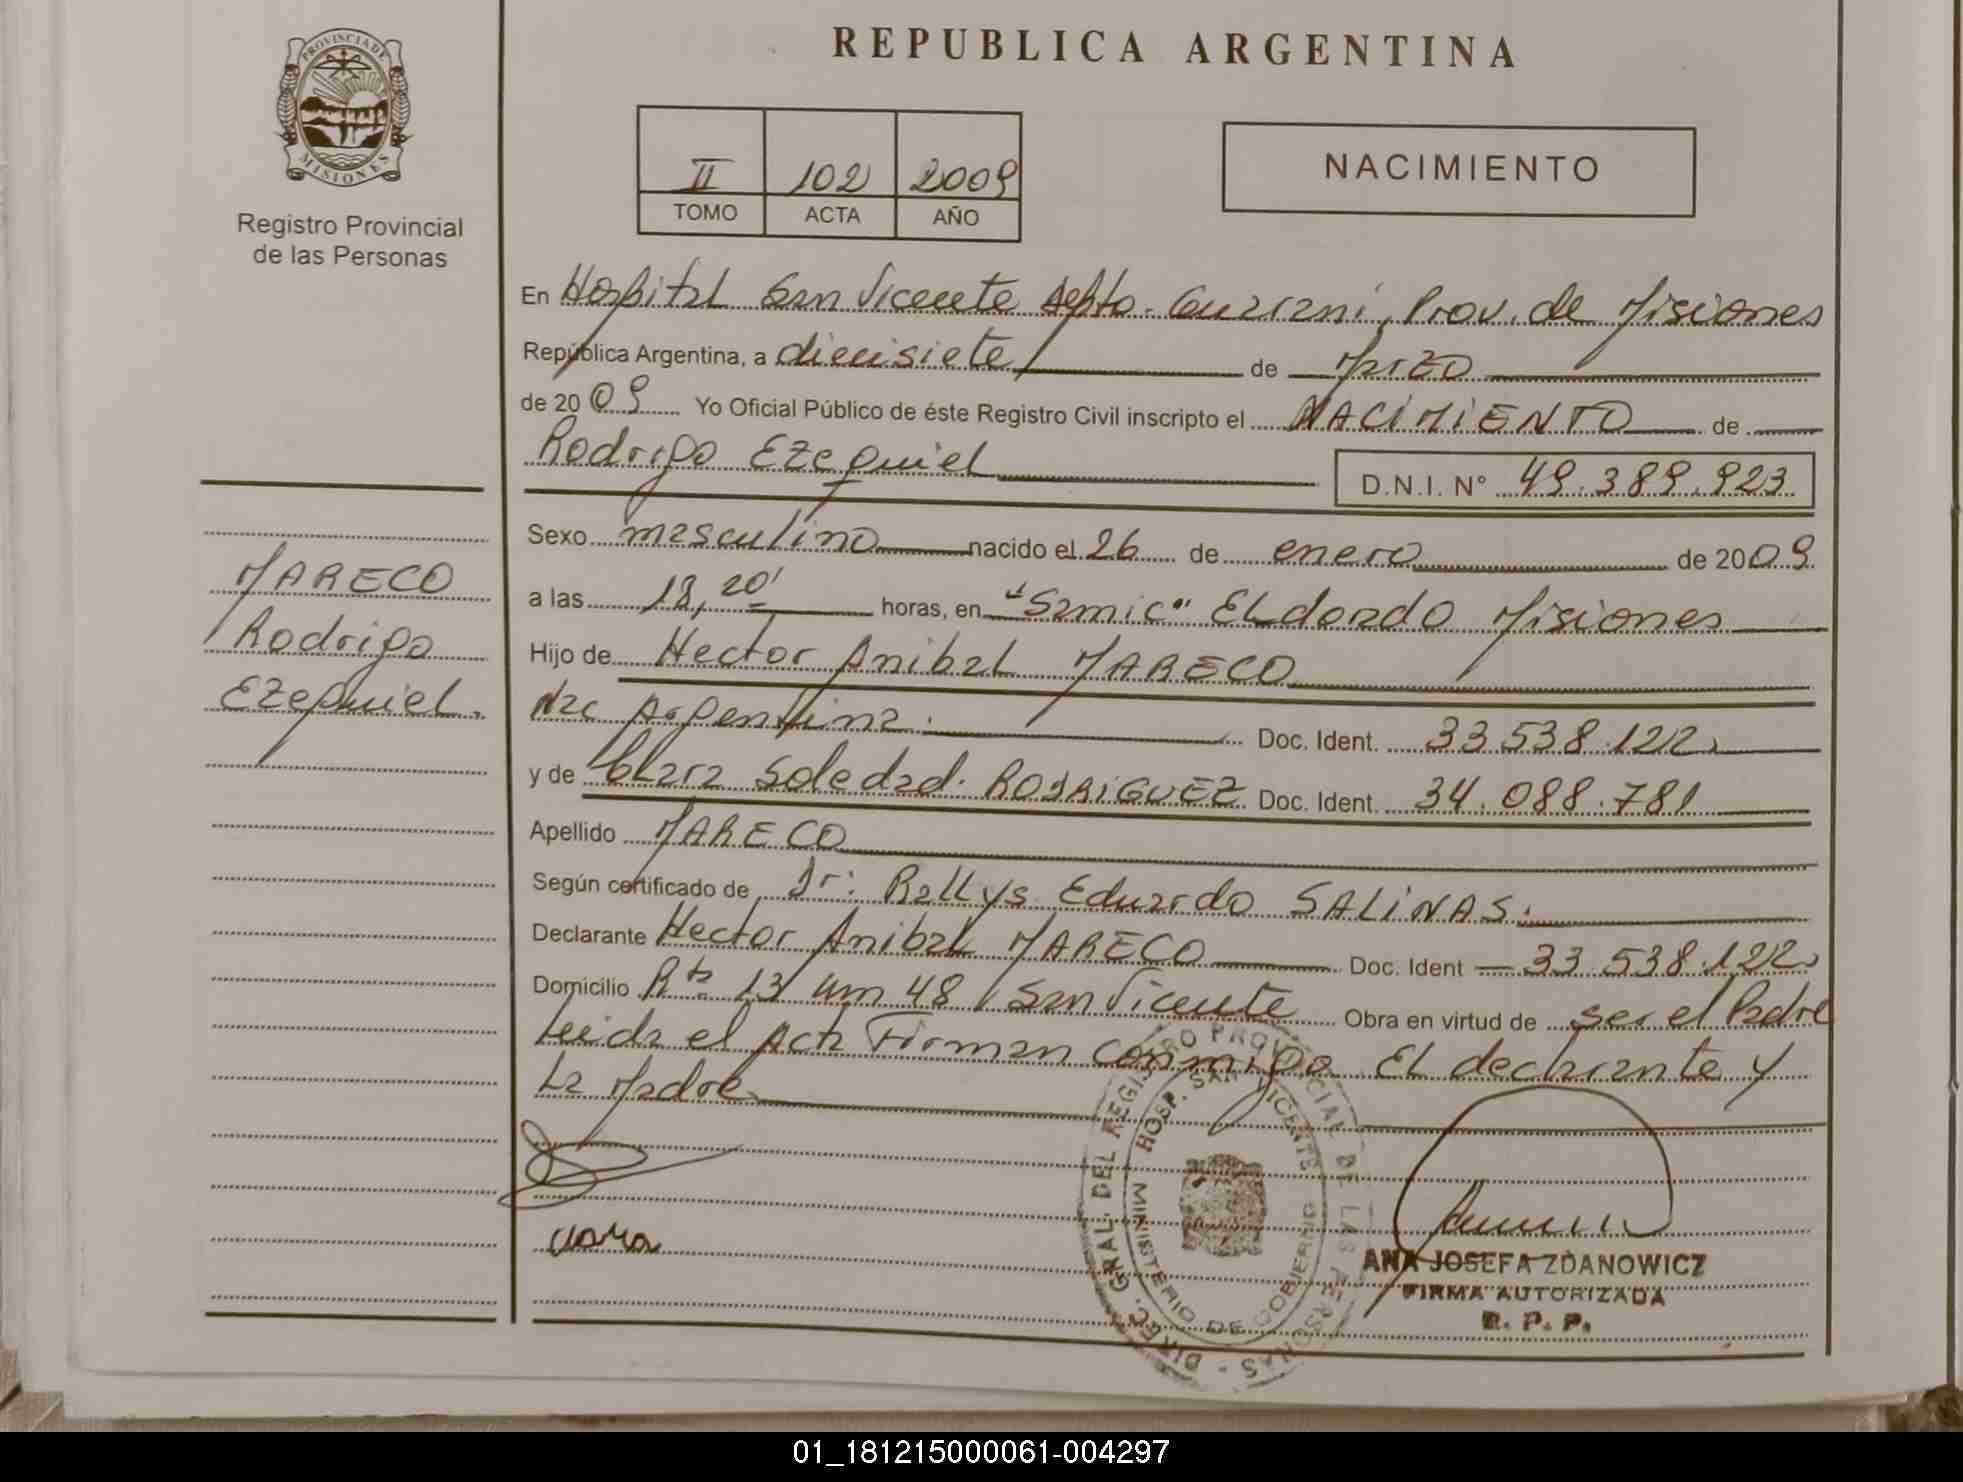 REPUBLICA ARGENTINA
PROVINCIA DE MISIONES
Registro Provincial
de las Personas
II 102 2009
TOMO ACTA AÑO
NACIMIENTO
En Hospital San Vicente Depto. Guarani, Prov. de Misiones
República Argentina, a diecisiete de Marzo
de 2009 Yo Oficial Público de éste Registro Civil inscripto el NACIMIENTO de
Rodrigo Ezequiel D.N.I. N° 49.389.923
Sexo masculino nacido el 26 de enero de 2009
a las 18,20' horas, en "Samic" ELdorado Misiones
Hijo de Hector Anibal MARECO
Nac Argentina. Doc. Ident. 33.538.122
y de Clara Soledad. RODRIGUEZ Doc. Ident. 34.088.781
Apellido MARECO
Según certificado de Dr: Rallys Eduardo SALINAS.
Declarante Hector Anibal MARECO Doc. Ident 33.538.122
Domicilio Rta 13 km 48 San Vicente Obra en virtud de ser el Padre
Leida el Acta Firman conmigo El declarante y
La Madre
MARECO
Rodrigo
Ezequiel.
Clara
DIREC. GRAL. DEL REGISTRO PROVINCIAL DE LAS PERSONAS -
HOSP. SAN VICENTE
MINISTERIO DE GOBIERNO
ANA JOSEFA ZDANOWICZ
FIRMA AUTORIZADA
R. P. P.
01_181215000061-004297